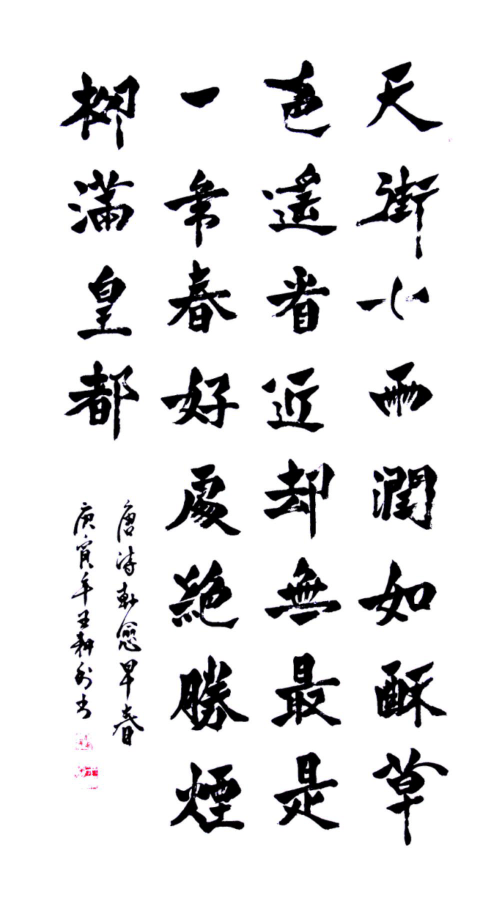 天街小雨潤如酥草
色遥看近却無最是
一年春好處絶勝煙
柳滿皇都
唐诗韩愈早春
庚寅年王耕列书